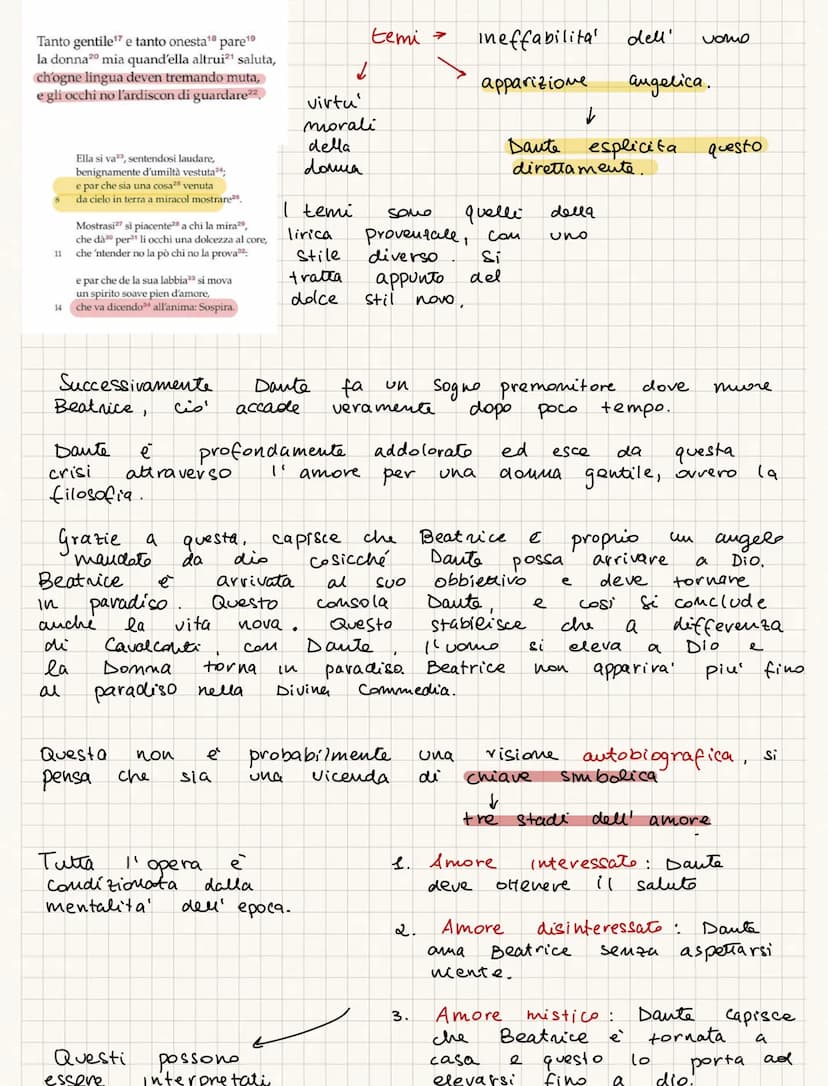 Tanto gentile¹⁷ e tanto onesta¹⁸ pare¹⁹
la donna²⁰ mia quand'ella altrui²¹ saluta,
ch'ogne lingua deven tremando muta,
e gli occhi no l'ardiscon di guardare²².
Ella si va²³, sentendosi laudare,
benignamente d'umiltà vestuta²⁴;
e par che sia una cosa²⁵ venuta
8 da cielo in terra a miracol mostrare²⁶.
Mostrasi²⁷ sì piacente²⁸ a chi la mira²⁹,
che dà³⁰ per³¹ li occhi una dolcezza al core,
11 che 'ntender no la può chi no la prova³²:
e par che de la sua labbia³³ si mova
un spirito soave pien d'amore,
14 che va dicendo³⁴ all'anima: Sospira.
temi → ineffabilita' dell' uomo
apparizione angelica.
virtu'
morali
della
donna
Dante esplicita questo
direttamente.
I temi sono quelli della
lirica provenzale, con uno
stile diverso. Si
tratta appunto del
dolce stil novo.
Successivamente Dante fa un sogno premonitore dove muore
Beatrice, cio' accade veramente dopo poco tempo.
Dante è profondamente addolorato ed esce da questa
crisi attraverso l' amore per una donna gentile, ovvero la
filosofia.
Grazie a questa, capisce che Beatrice è proprio un angelo
mandato da dio cosicché Dante possa arrivare a Dio.
Beatrice è arrivata al suo obbiettivo e deve tornare
in paradiso. Questo consola Dante, e così si conclude
anche la vita nova. Questo stabilisce che a differenza
di Cavalcanti, con Dante, l'uomo si eleva a Dio e
la Donna torna in paradiso. Beatrice non apparira' piu' fino
al paradiso nella Divina Commedia.
Questa non e' probabilmente una visione autobiografica, si
pensa che sia una vicenda di chiave simbolica
tre stadi dell' amore
Tutta l'opera è
condizionata dalla
mentalita' dell' epoca.
1. Amore interessato: Dante
deve ottenere il saluto
2. Amore disinteressato: Dante
ama Beatrice senza aspettarsi
niente.
3. Amore mistico: Dante capisce
che Beatrice è tornata a
casa e questo lo porta ad
elevarsi fino a dio.
Questi possono
essere interpretati